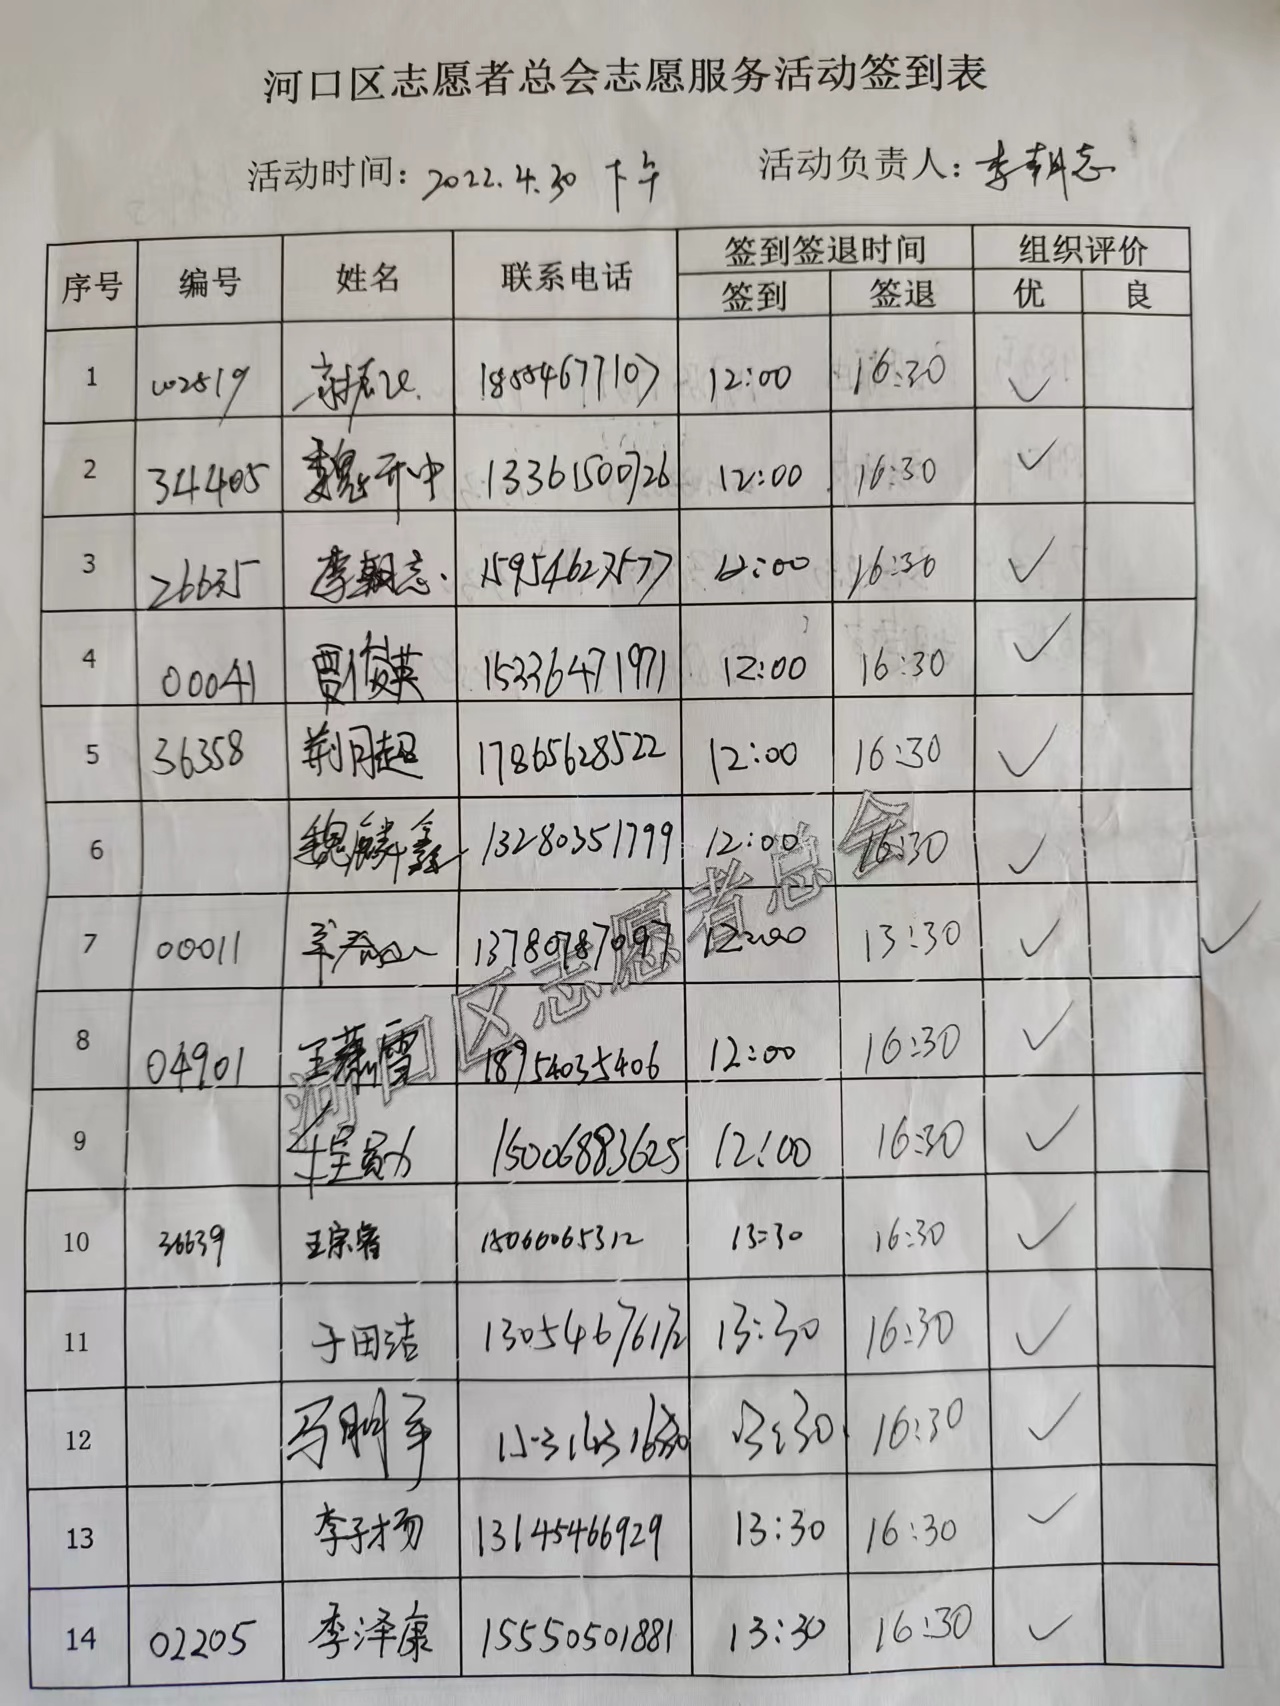 河口区志愿者总会志愿服务活动签到表
活动时间：2022.4.30 下午 活动负责人：李朝志
序号 编号 姓名 联系电话 签到签退时间 组织评价
签到 签退 优 良
1 002519 18554677107 12:00 16:30 ✓
2 34405 魏开中 13361500726 12:00 16:30 ✓
3 26635 李朝志 15954627577 12:00 16:30 ✓
4 00041 贾俊英 15336471971 12:00 16:30 ✓
5 36358 荆月超 17865628522 12:00 16:30 ✓
6 魏麟鑫 13280351799 12:00 16:30 ✓
7 00011 13780787097 12:00 13:30 ✓ ✓
8 04901 王慕雪 18954035406 12:00 16:30 ✓
9 15006883625 12:00 16:30 ✓
10 36639 王宗睿 15066065312 13:30 16:30 ✓
11 于田洁 13054676172 13:30 16:30 ✓
12 马明军 13:30 16:30 ✓
13 李子扬 13145466929 13:30 16:30 ✓
14 02205 李泽康 15550501881 13:30 16:30 ✓
河口区志愿者总会